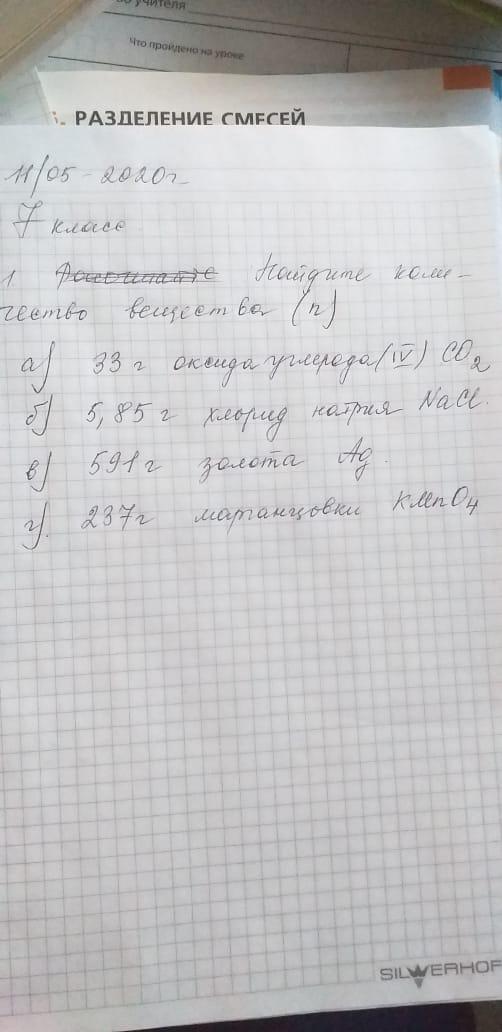 учителя
Что пройдено на уроке
РАЗДЕЛЕНИЕ СМЕСЕЙ
11/05-2020г.
7 класс
1. Рассчитайте Найдите коли-
чество вещества (n)
а) 33 г оксида углерода (IV) CO2
б) 5,85 г хлорид натрия NaCl.
в) 591 г золота Ag.
г). 237 г марганцовки KMnO4
SILWERHOF